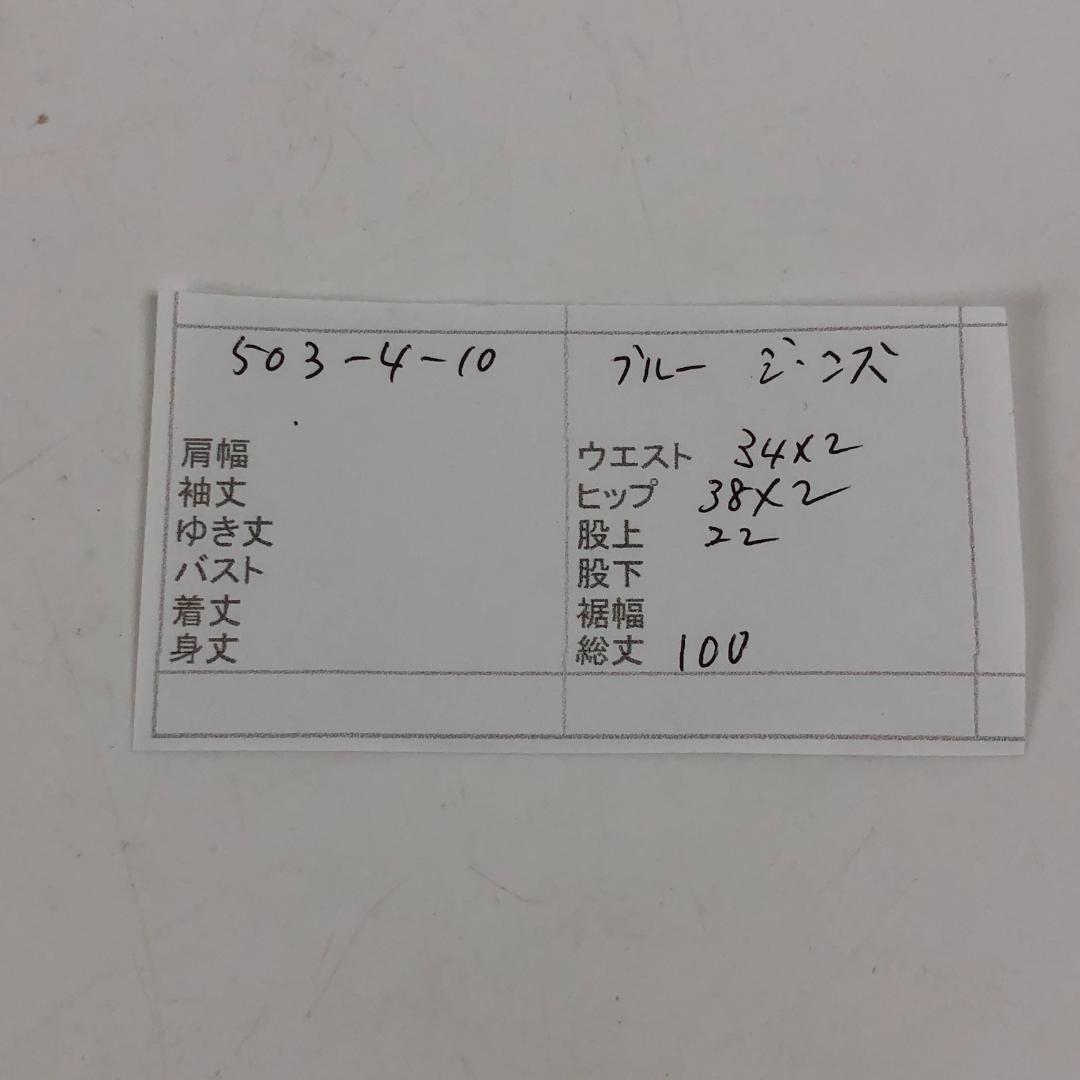 503-4-10
肩幅
袖丈
ゆき丈
バスト
着丈
身丈
ブルー ジーンズ
ウエスト 34×2
ヒップ 38×2
股上 22
股下
裾幅
総丈 100